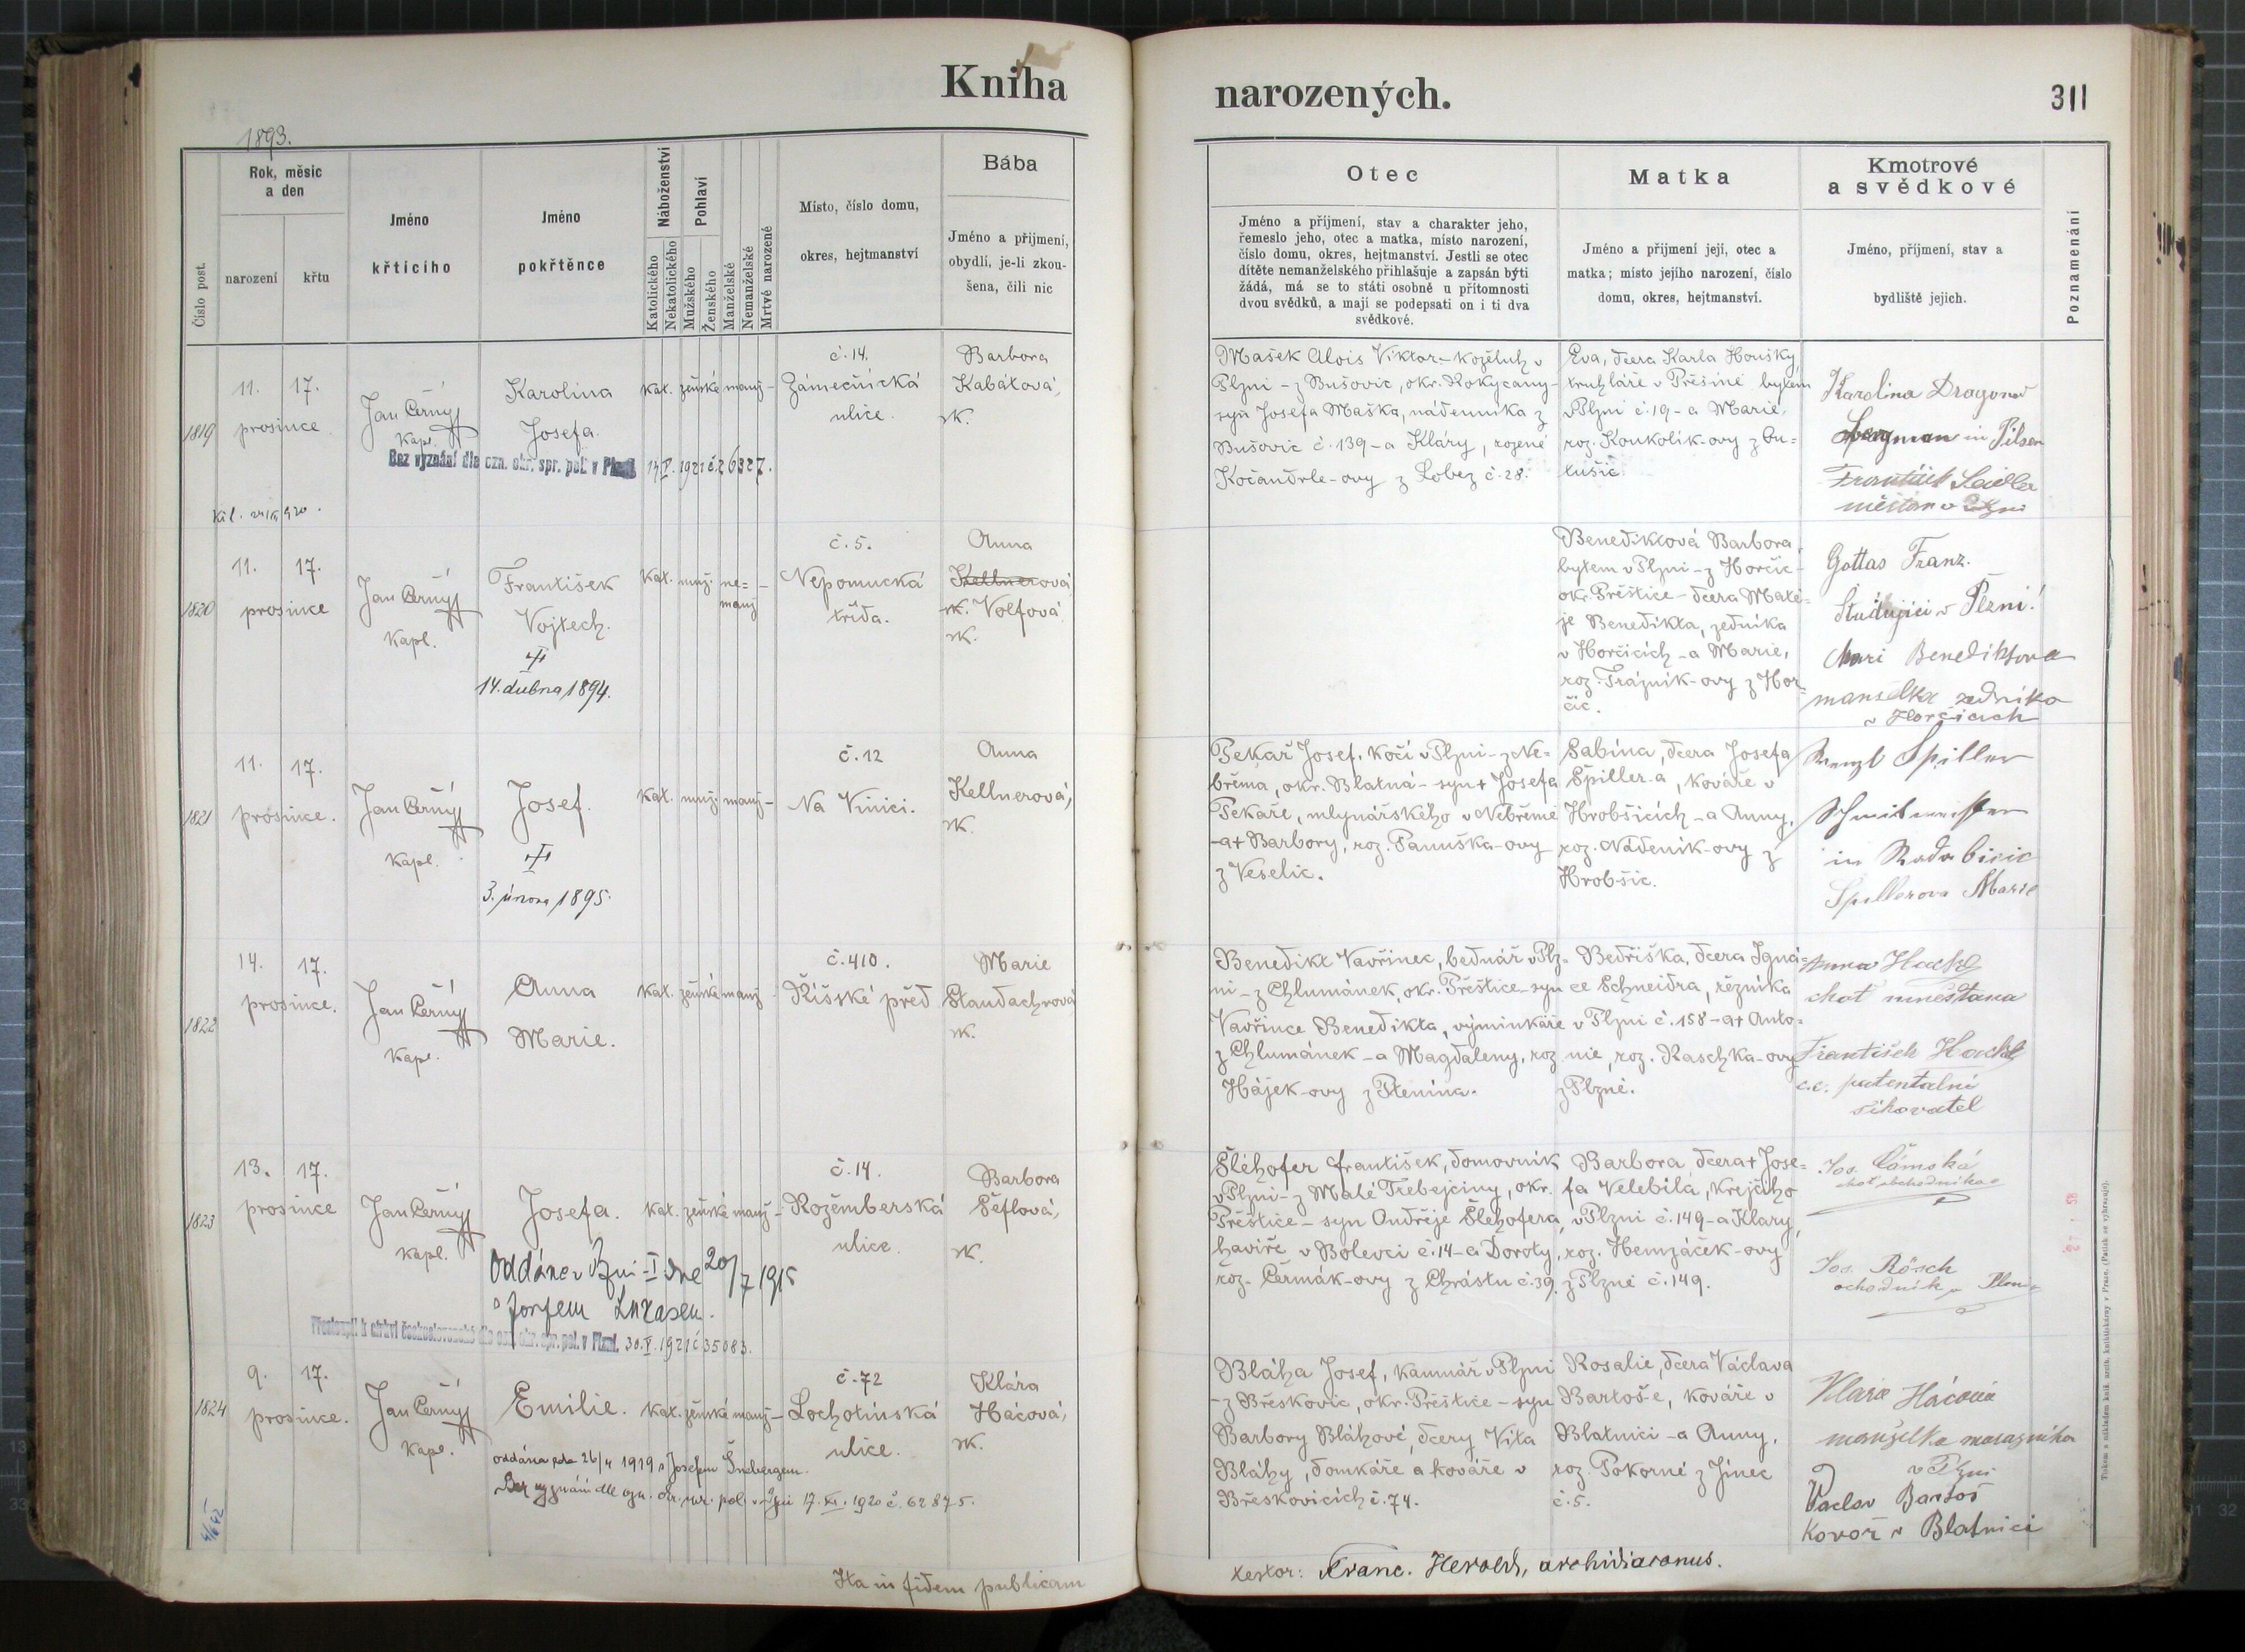 Kniha
narozených.
311
1893.
Číslo post.
Rok, měsíc
a den
narození
křtu
Jméno
křtícího
Jméno
pokřtěnce
Náboženství
Katolického
Nekatolického
Pohlaví
Mužského
Ženského
Manželské
Nemanželské
Mrtvé narozené
Místo, číslo domu,
okres, hejtmanství
Bába
Jméno a přijmení,
obydlí, je-li zkou-
šena, čili nic
Otec
Jméno a přijmení, stav a charakter jeho,
řemeslo jeho, otec a matka, místo narození,
číslo domu, okres, hejtmanství. Jestli se otec
dítěte nemanželského přihlašuje a zapsán býti
žádá, má se to státi osobně u přítomnosti
dvou svědků, a mají se podepsati on i ti dva
svědkové.
Matka
Jméno a přijmení její, otec a
matka; místo jejího narození, číslo
domu, okres, hejtmanství.
Kmotrové
a svědkové
Jméno, příjmení, stav a
bydliště jejich.
Poznamenání
1819
11. 17.
prosince
Jan Černý
Kapl.
Karolina
Josefa.
Kat. ženské manž -
č. 14.
Zámečnická
ulice.
Barbora
Kabátová,
zk.
Bez vyznání dle ozn. okr. spr. pol. v Plzni 14/V. 1921 č. 26327.
Mašek Alois Viktor - koželuh v
Plzni - z Bušovic, okr. Rokycany -
syn Josefa Maška, nádenníka z
Bušovic č. 139 - a Kláry, rozené
Kočandrle-ovy z Lobez č. 28.
Eva, dcera Karla Housky
truhláře v Přešíně bytem
v Plzni č. 19 - a Marie,
roz. Koukolík-ovy z Ču=
tušic.
Karolina Dragoner
in Pilsen
František Seidler
měšťan v Plzni
1820
11. 17.
prosince
Jan Černý
Kapl.
František
Vojtech.
14. dubna 1894.
Kat. muž. ne=
manž
č. 5.
Nepomucká
třída.
Anna
Kellnerová
zk. Volfová
zk.
Benediktová Barbora,
bytem v Plzni - z Horčic -
okr. Přeštice - dcera Matě=
je Benedikta, zedníka
v Horčicích - a Marie,
roz. Trázník-ovy z Hor
čic.
Gottas Franz.
Studující v Plzni!
Mari Benediktova
manselka zednika
v Horčicich
1821
11. 17.
prosince.
Jan Černý
Kapl.
Josef.
3. února 1895.
Kat. muž. manž -
č. 12
Na Vinici.
Anna
Kellnerová,
zk.
Pekař Josef, kočí v Plzni - z Ne=
břema, okr. Blatná - syn † Josefa
Pekaře, mlynářského v Nebřemě
- a † Barbory, roz. Panuška-ovy
z Veselic.
Sabina, dcera Josefa
Špiller-a, kováře v
Hrobšicích - a Anny,
roz. Nádeník-ovy z
Hrobšic.
Wenzl Spiller
Schmidmeister
in Radobicic
Spillerova Marie
1822
14. 17.
prosince.
Jan Černý
Kapl.
Anna
Marie.
Kat. ženské manž
č. 410.
Říšské před
Marie
Staudachrová
zk.
Benedikt Vavřinec, bednář v Plz=
ni - z Chlumánek, okr. Přeštice - syn
Vavřince Benedikta, výminkáře
z Chlumánek - a Magdaleny, roz
Hájek-ovy z Ptenína.
Bedřiška, dcera Igná=
ce Schneidra, řezníka
v Plzni č. 158 - a † Anto=
nie, roz. Raschka-ovy
z Plzně.
Anna Hackl
choť mněšťana
František Hackl
c.c. patentalní
1823
13. 17.
prosince
Jan Černý
Kapl.
Josefa.
Kat. ženské manž -
č. 14.
Rožemberská
ulice.
Barbora
Šeflová,
zk.
Oddána v Plzni - I dne 20/7 1915
s Josefem Lukasem.
Přestoupil k církvi československé dle ozn. okr. spr. pol. v Plzni. 30.V.1921 č 35083.
Šléhofer František, domovník
v Plzni - z Malé Trebejčiny, okr.
Přeštice - syn Ondřeje Šlehofera,
havíře v Bolevci č. 14 - a Doroty,
roz. Čermák-ovy z Chrástu č. 39.
Barbora, dcera † Jose=
fa Velebila, krejčího
v Plzni č. 149 - a Klary,
roz. Hemzáček-ovy
z Plzně č. 149.
Jos. Rösch
1824
9. 17.
prosince.
Jan Černý
Kapl.
Emilie.
Kat. ženské manž -
č. 72
Lochotínská
ulice.
Klára
Hácová,
zk.
oddána zde 26/4 1919 s Josefem Šnebergem.
Bez vyznání dle ozn. okr. spr. pol. v Plzni 17. XI. 1920 č. 62875.
Bláha Josef, kamnář v Plzni
- z Břeskovic, okr. Přeštice - syn
Barbory Bláhové, dcery Víta
Bláhy, domkáře a kováře v
Břeskovicích č. 74.
Rosalie, dcera Václava
Bartoš-e, kováře v
Blatnici - a Anny,
roz. Pokorné z Jinec
č. 5.
Klara Hácová
manželka
v Plzni
Vaclav Bartoš
Kovoř v Blatnici
Ita in fidem publicam
testor: Franc. Herold, archidiaconus.